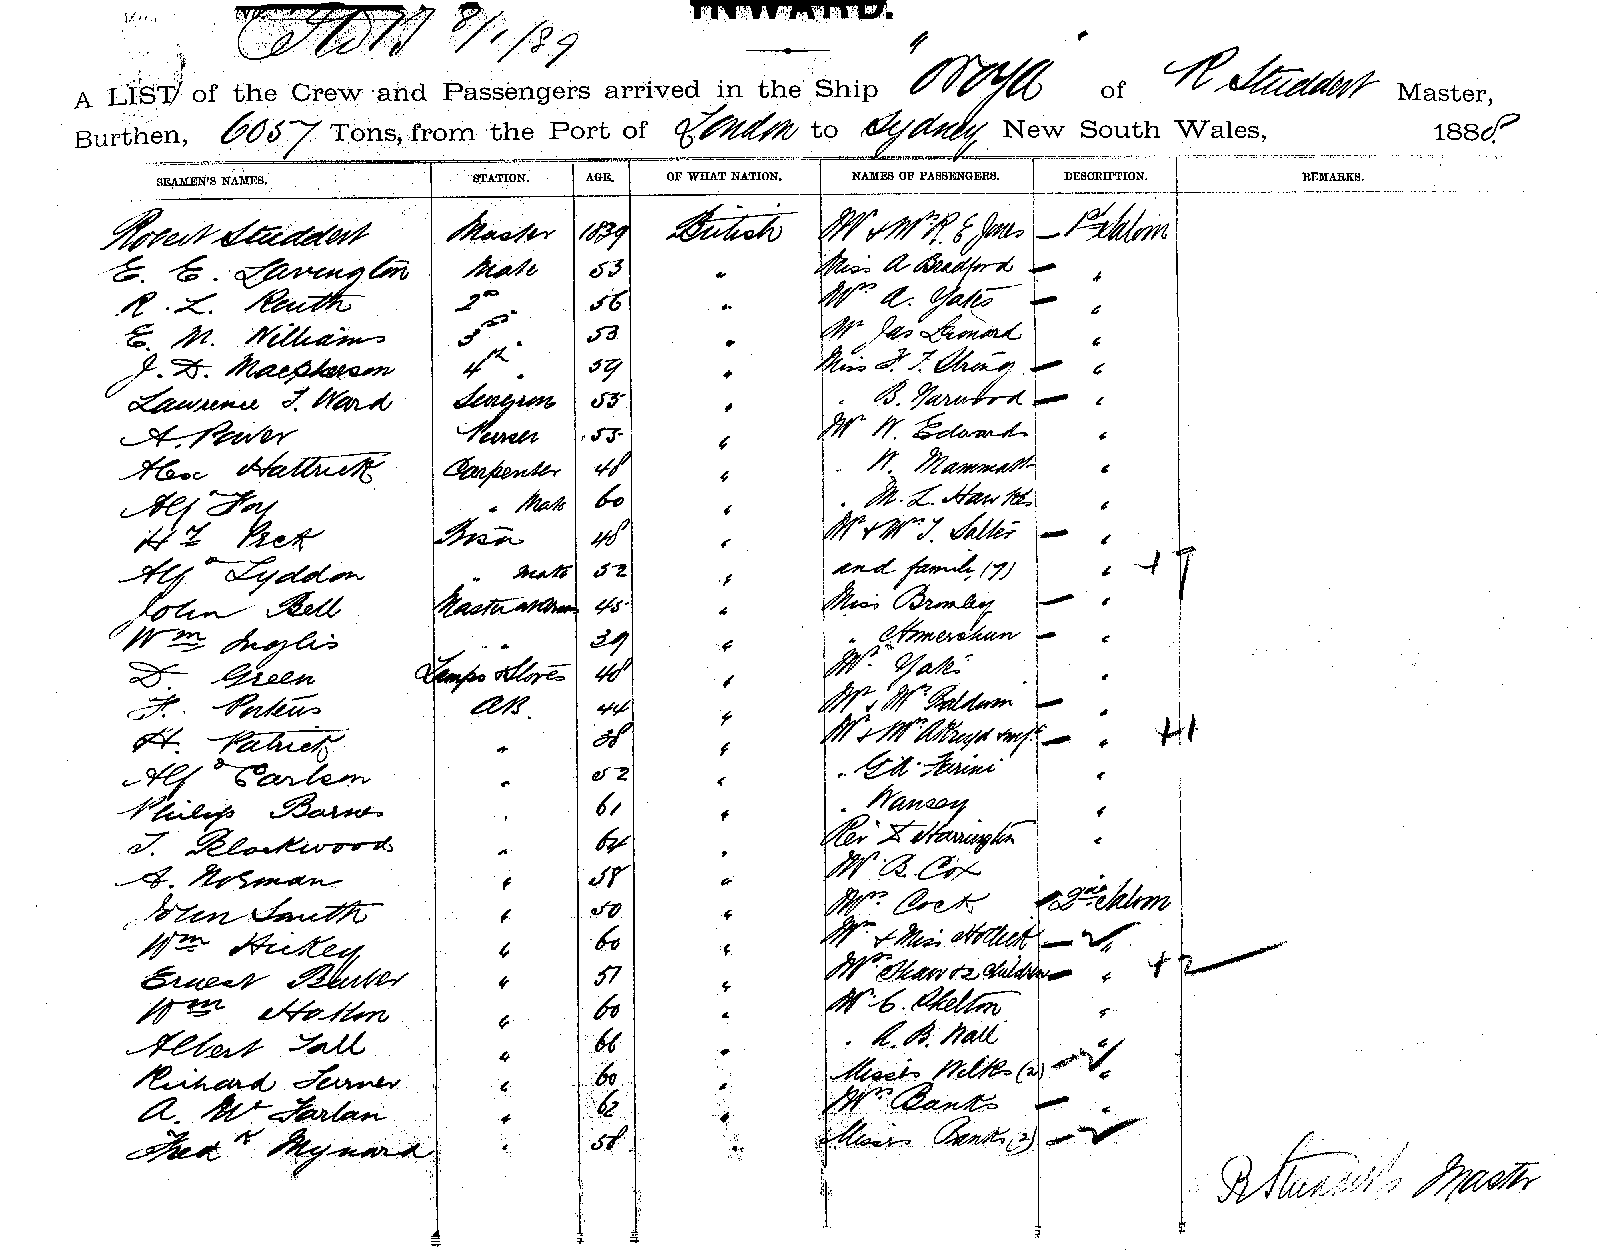 INWARD.
8/1/89
A LIST of the Crew and Passengers arrived in the Ship "Oroya" of R Studdert Master,
Burthen, 6057 Tons, from the Port of London to Sydney, New South Wales, 1888
SEAMEN'S NAMES. STATION. AGE. OF WHAT NATION. NAMES OF PASSENGERS. DESCRIPTION. REMARKS.
Robert Studdert Master 1839 British Mr & Mrs R. E Jones — 1st Saloon
E. E. Lavington Mate 53 " Miss A Bradford — "
R. L. Routh 2nd 56 " Mrs A. Yates — "
E. M. Williams 3rd " 53 " Mr Jas Leonard "
J. D. Macpherson 4th " 59 " Miss F. T. String — "
Lawrence T. Ward Surgeon 55 " " B. Yarwood — "
A. Power Purser 55 " Mr W. Edwards "
Alex Hattrick Carpenter 48 " " W. Mammatt "
Alf Foy " Mate 60 " " M. L. Hawkes "
Hy Peck Bosn 48 " Mr & Mrs T. Salter — "
Alfd Lyddon " Mate 52 " and family (7) " +7
John Bell Master at Arms 45 " Miss Bromley — "
Wm Inglis " 39 " " Homersham — "
D. Green Lamps & Stores 48 " Mr Yates "
F. Porteus AB. 44 " Mr & Mrs Baldwin — "
H. Patrick " 38 " Mr & Mrs Akroyd & inft — " +1
Alfd Carlson " 52 " " "
Philip Barnes " 61 " " Wansey "
T. Blackwood " 64 " Rev Harrington "
A. Norman " 58 " Mr B. Cox
John Smith " 50 " Mrs Cock 2nd Saloon
Wm Hickey " 60 " Mr & Miss — "
Ernest Barber " 57 " Mrs Shaw & 2 children — " +2
Wm " 60 " Mr C. Skelton "
Albert Tall " 66 " " A. B. Wall "
Richard Turner " 60 " Misses Wilks (2) — "
A. McFarlan " 62 " Mrs Banks — "
Fredk Mynard " 58 " Misses Banks (2) —
R Studdert Master